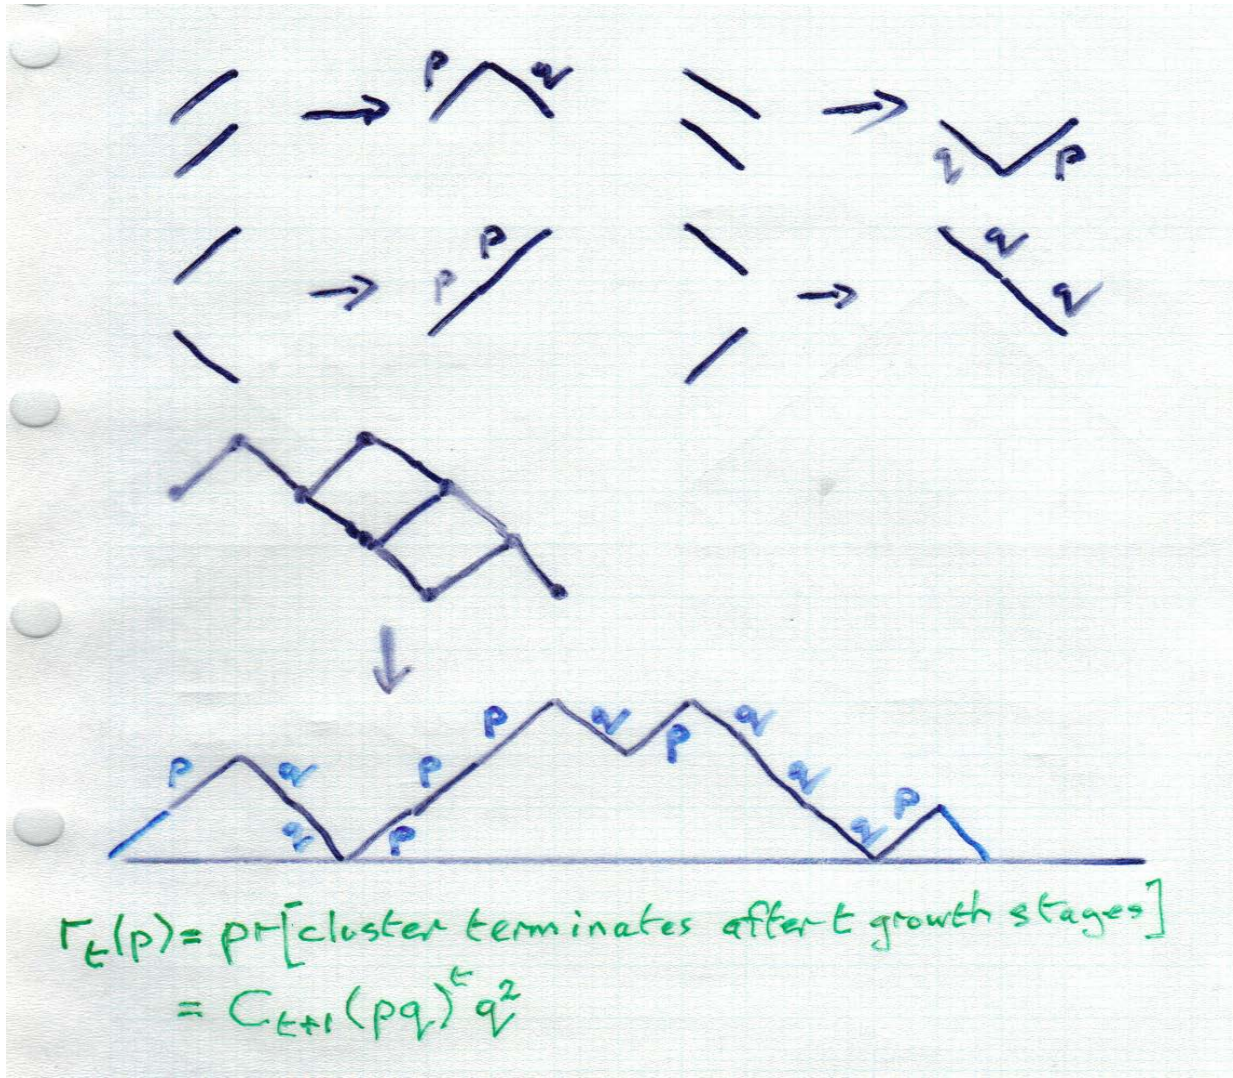 p q
q p
p p q q
p q q p p p q p q q q p
r_t(p) = pr[cluster terminates after t growth stages]
= C_{t+1}(pq)^t q^2